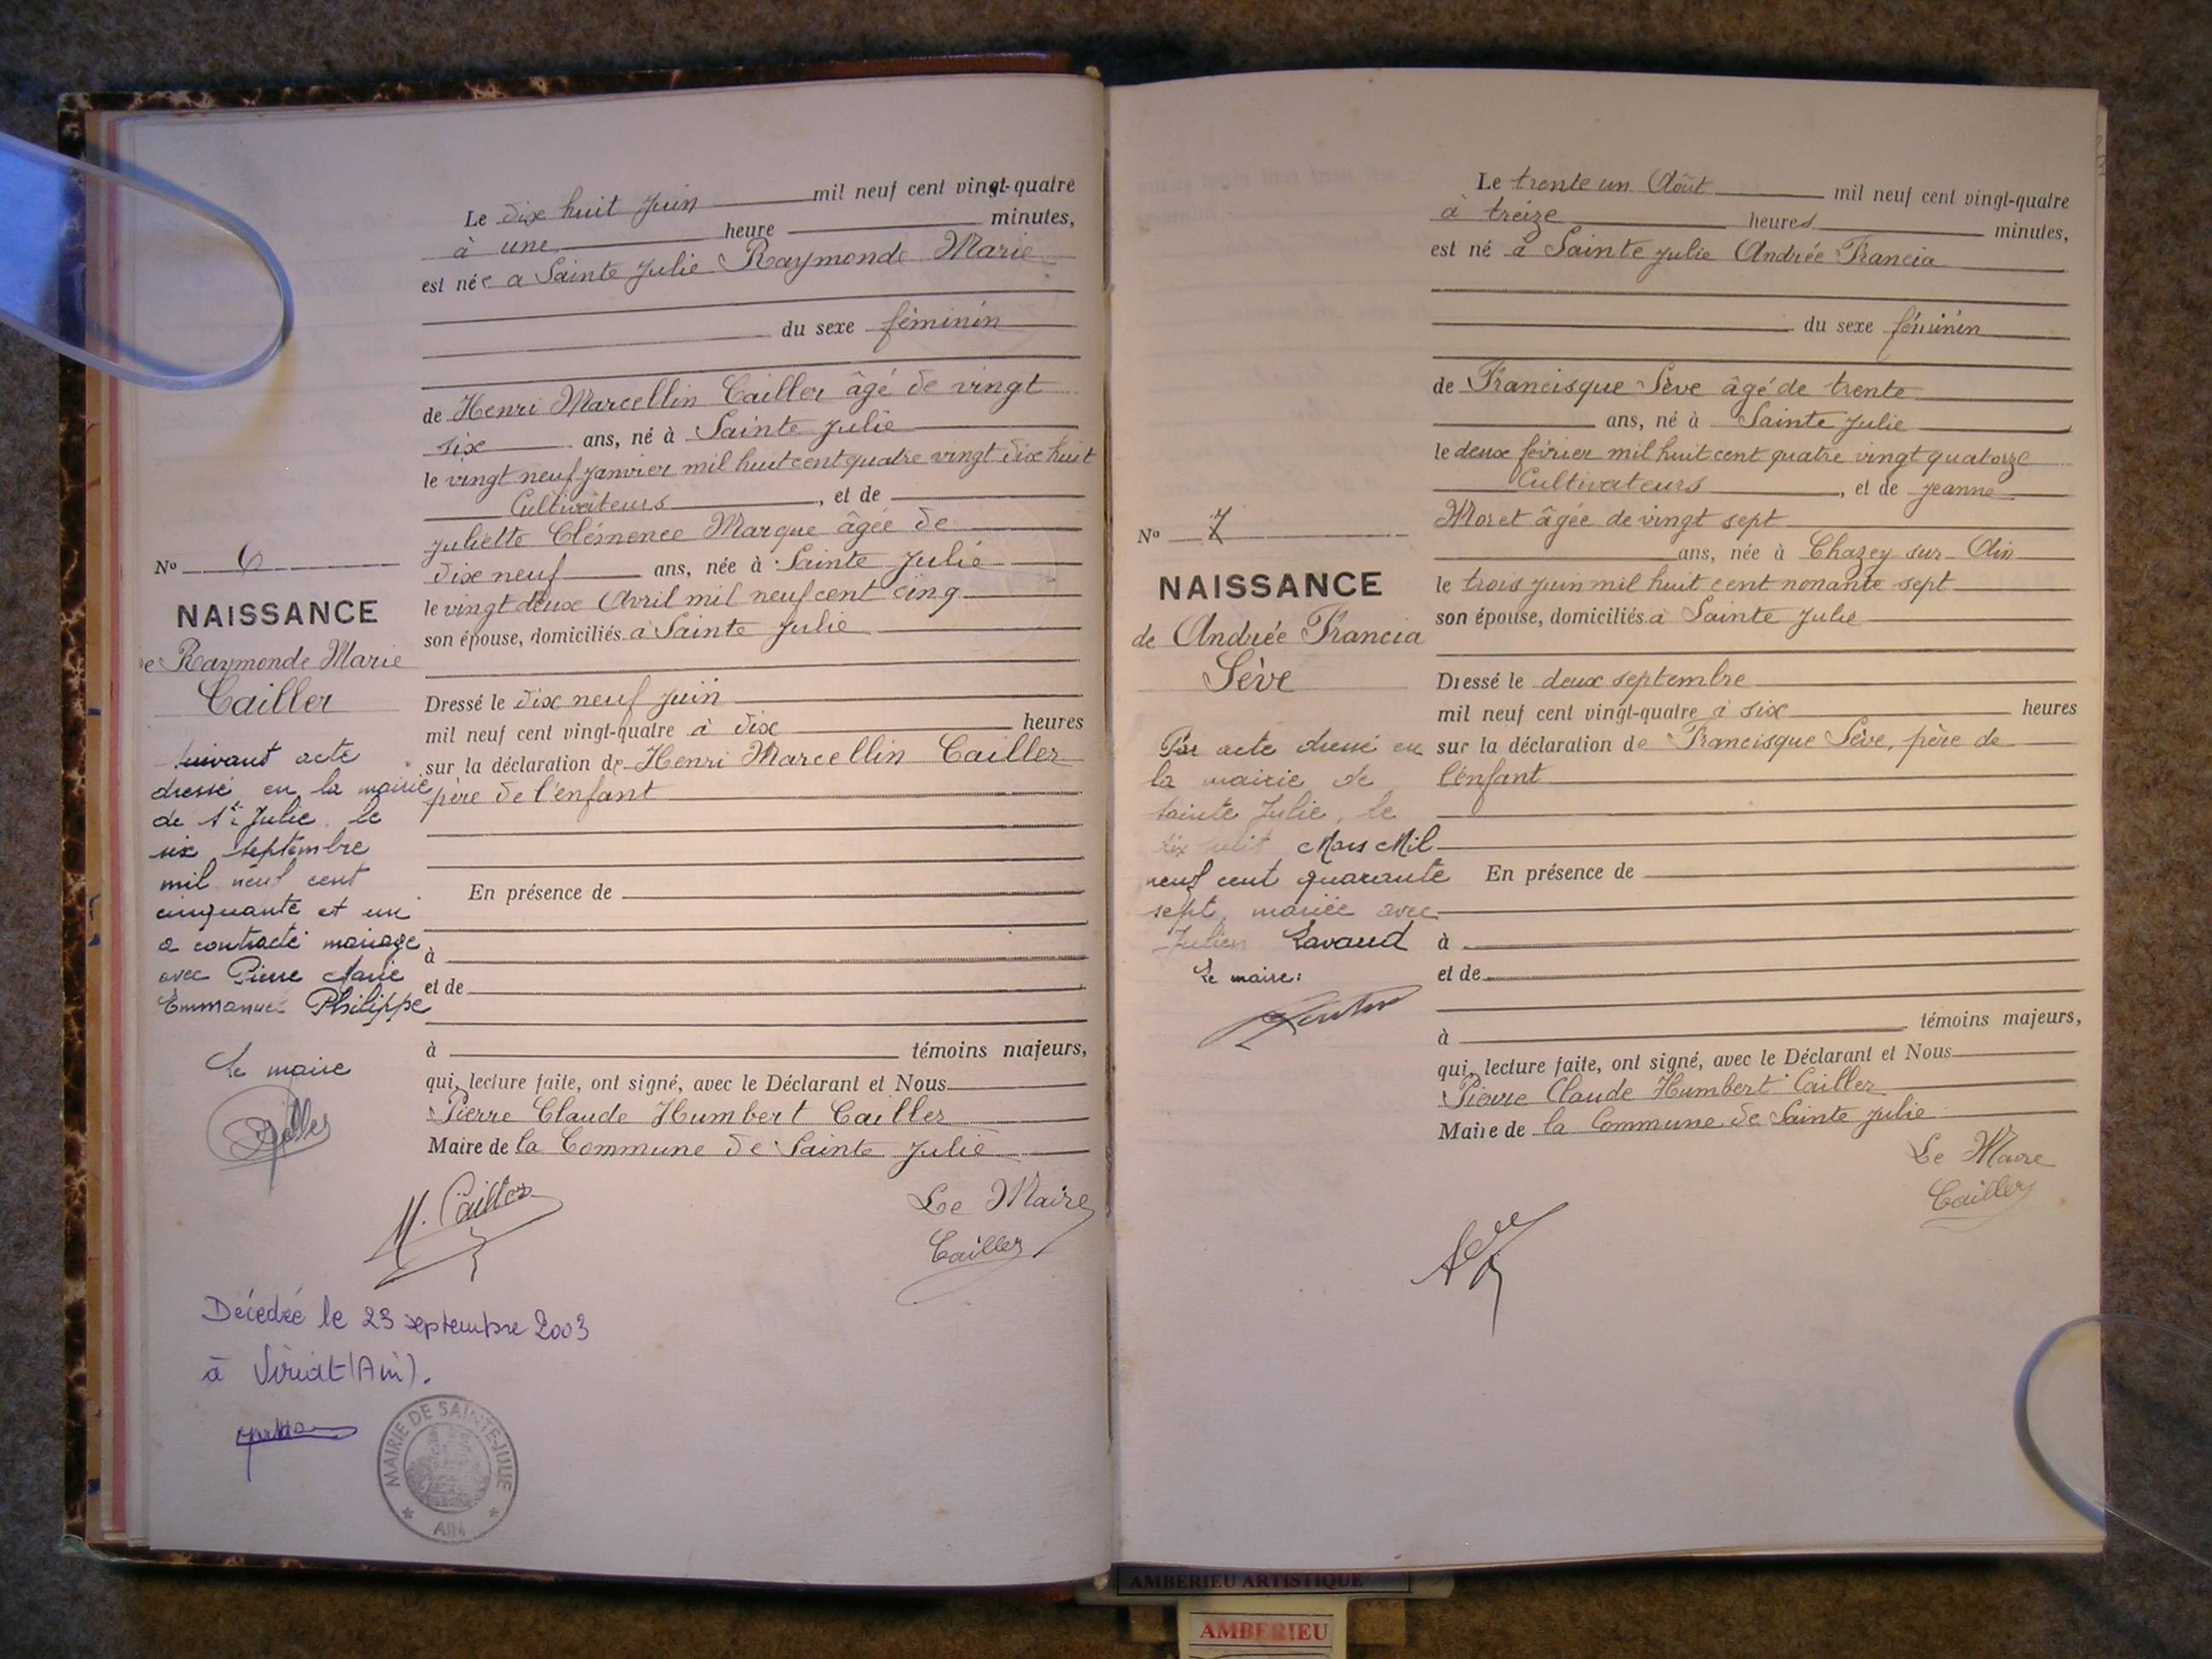 Le dix huit Juin mil neuf cent vingt-quatre
à une heure minutes,
est née a Sainte Julie Raymonde Marie
du sexe féminin
de Henri Marcellin Cailler âgé de vingt
six ans, né à Sainte Julie
le vingt neuf Janvier mil huit cent quatre vingt dix huit
Cultivateurs, et de
Juliette Clémence Marque âgée de
dix neuf ans, née à Sainte Julie
le vingt deux Avril mil neuf cent cinq
son épouse, domiciliés à Sainte Julie
Dressé le dix neuf Juin
mil neuf cent vingt-quatre à dix heures
sur la déclaration de Henri Marcellin Cailler
père de l'enfant
En présence de
à
et de
à témoins majeurs,
qui, lecture faite, ont signé, avec le Déclarant et Nous
Pierre Claude Humbert Cailler
Maire de la Commune de Sainte Julie
M. Cailler
Le Maire
Cailler
No 6
NAISSANCE
e Raymonde Marie
Cailler
Suivant acte
dressé en la mairie
de Ste Julie, le
six septembre
mil neuf cent
cinquante et un
a contracté mariage
avec Pierre Marie
Emmanuel Philippe
Le maire
Décédée le 23 septembre 2003
à Viriat (Ain).
MAIRIE DE SAINTE-JULIE
* AIN *
Le trente un Août mil neuf cent vingt-quatre
à treize heures minutes,
est né à Sainte Julie Andrée Francia
du sexe féminin
de Francisque Sève âgé de trente
ans, né à Sainte Julie
le deux février mil huit cent quatre vingt quatorze
Cultivateurs, et de Jeanne
Moret âgée de vingt sept
ans, née à Chazey sur Ain
le trois Juin mil huit cent nonante sept
son épouse, domiciliés à Sainte Julie
Dressé le deux septembre
mil neuf cent vingt-quatre à six heures
sur la déclaration de Francisque Sève, père de
l'enfant
En présence de
à
et de
à témoins majeurs,
qui, lecture faite, ont signé, avec le Déclarant et Nous
Pierre Claude Humbert Cailler
Maire de la Commune de Sainte Julie
Le Maire
Cailler
No 7
NAISSANCE
de Andrée Francia
Sève
Par acte dressé en
la mairie de
Sainte Julie, le
dix huit Mars Mil
neuf cent quarante
sept, mariée avec
Julien Lavaud
Le maire:
AMBERIEU ARTISTIQUE
AMBERIEU